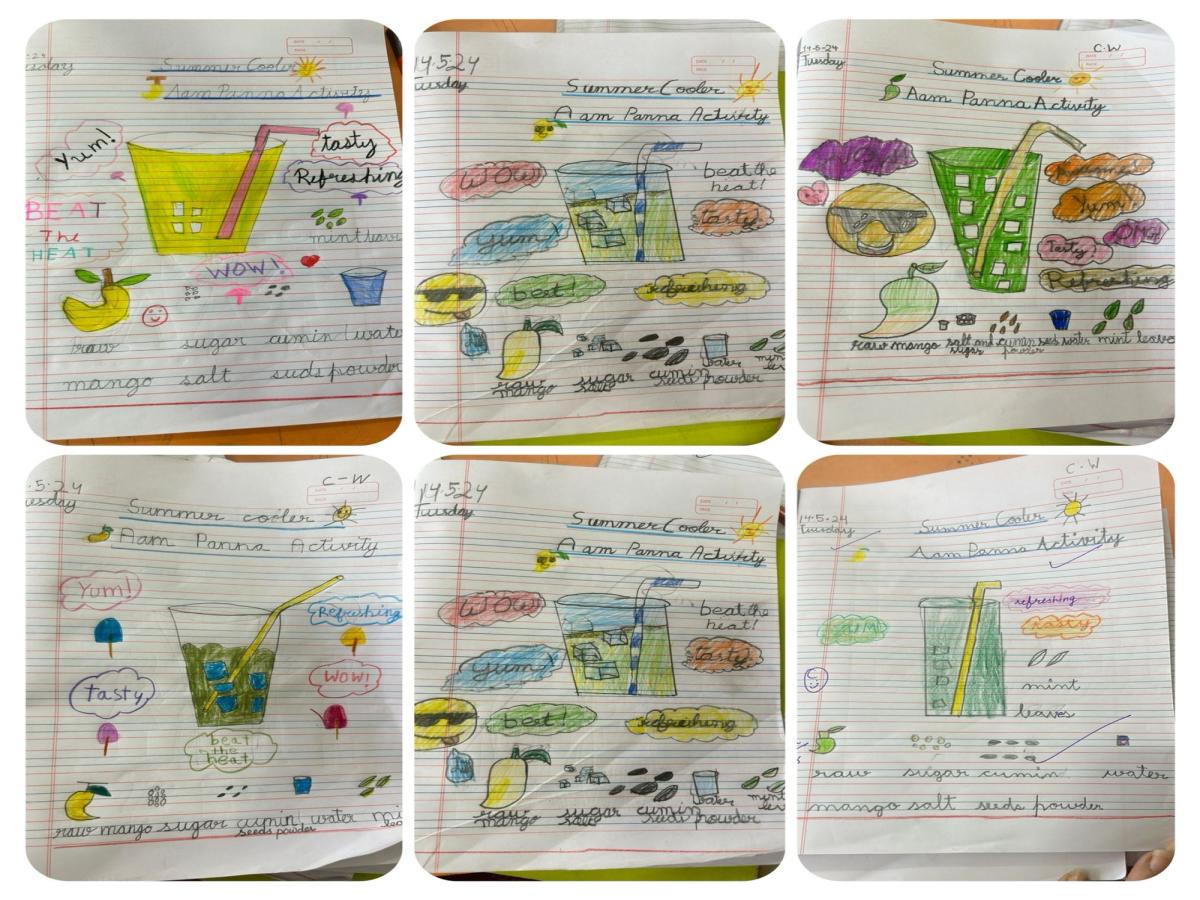 Summer Cooler
Aam Panna Activity
Yum!
tasty
Refreshing
BEAT
The
HEAT
mint leave
WOW!
raw sugar cumin water
mango salt seeds powder
14.5.24
Tuesday
Summer Cooler
Aam Panna Activity
WOW!
beat the
heat!
tasty
Yum!
beat!
refreshing
raw sugar cumin water
mango seeds powder
14-5-24
Tuesday
C.W
Summer Cooler
Aam Panna Activity
Yum
OMG!
Tasty
Refreshing
raw mango salt and cumin seeds water mint leave
sugar powder
.5.24
C-W
Summer cooler
Aam Panna Activity
Yum!
Refreshing
WOW!
tasty
beat
the
heat
raw mango sugar cumin water
seeds powder
14.5.24
Tuesday
Summer Cooler
Aam Panna Activity
WOW!
beat the
heat!
tasty
Yum!
beat!
refreshing
raw sugar cumin water
mango seeds powder
C.W
14-5-24
Tuesday
Summer Cooler
Aam Panna Activity
refreshing
tasty
YUM
mint
leaves
raw sugar cumin water
mango salt seeds powder